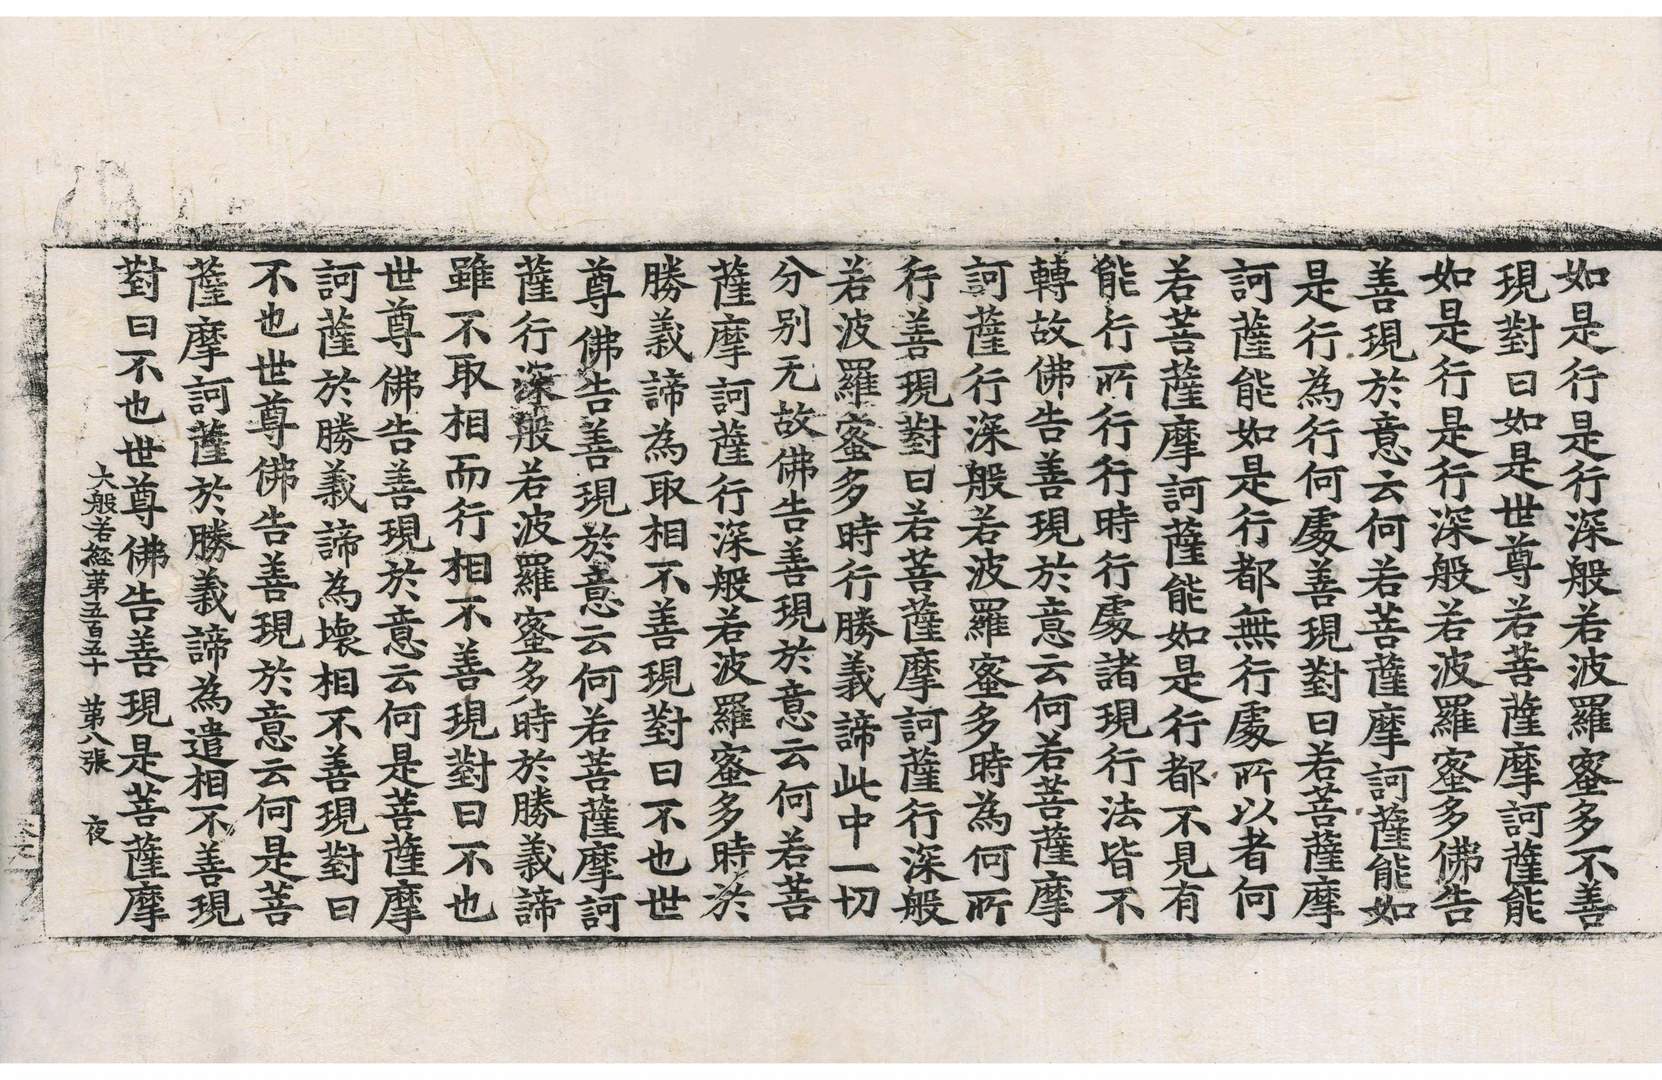 如是行是行深般若波羅蜜多不善
現對曰如是世尊若菩薩摩訶薩能
如是行是行深般若波羅蜜多佛告
善現於意云何若菩薩摩訶薩能如
是行為行何處善現對曰若菩薩摩
訶薩能如是行都無行處所以者何
若菩薩摩訶薩能如是行都不見有
能行所行行時行處諸現行法皆不
轉故佛告善現於意云何若菩薩摩
訶薩行深般若波羅蜜多時為何所
行善現對曰若菩薩摩訶薩行深般
若波羅蜜多時行勝義諦此中一切
分别无故佛告善現於意云何若菩
薩摩訶薩行深般若波羅蜜多時於
勝義諦為取相不善現對曰不也世
尊佛告善現於意云何若菩薩摩訶
薩行深般若波羅蜜多時於勝義諦
雖不取相而行相不善現對曰不也
世尊佛告善現於意云何是菩薩摩
訶薩於勝義諦為壞相不善現對曰
不也世尊佛告善現於意云何是菩
薩摩訶薩於勝義諦為遣相不善現
對曰不也世尊佛告善現是菩薩摩
大般若經第五百五十 第八張 夜